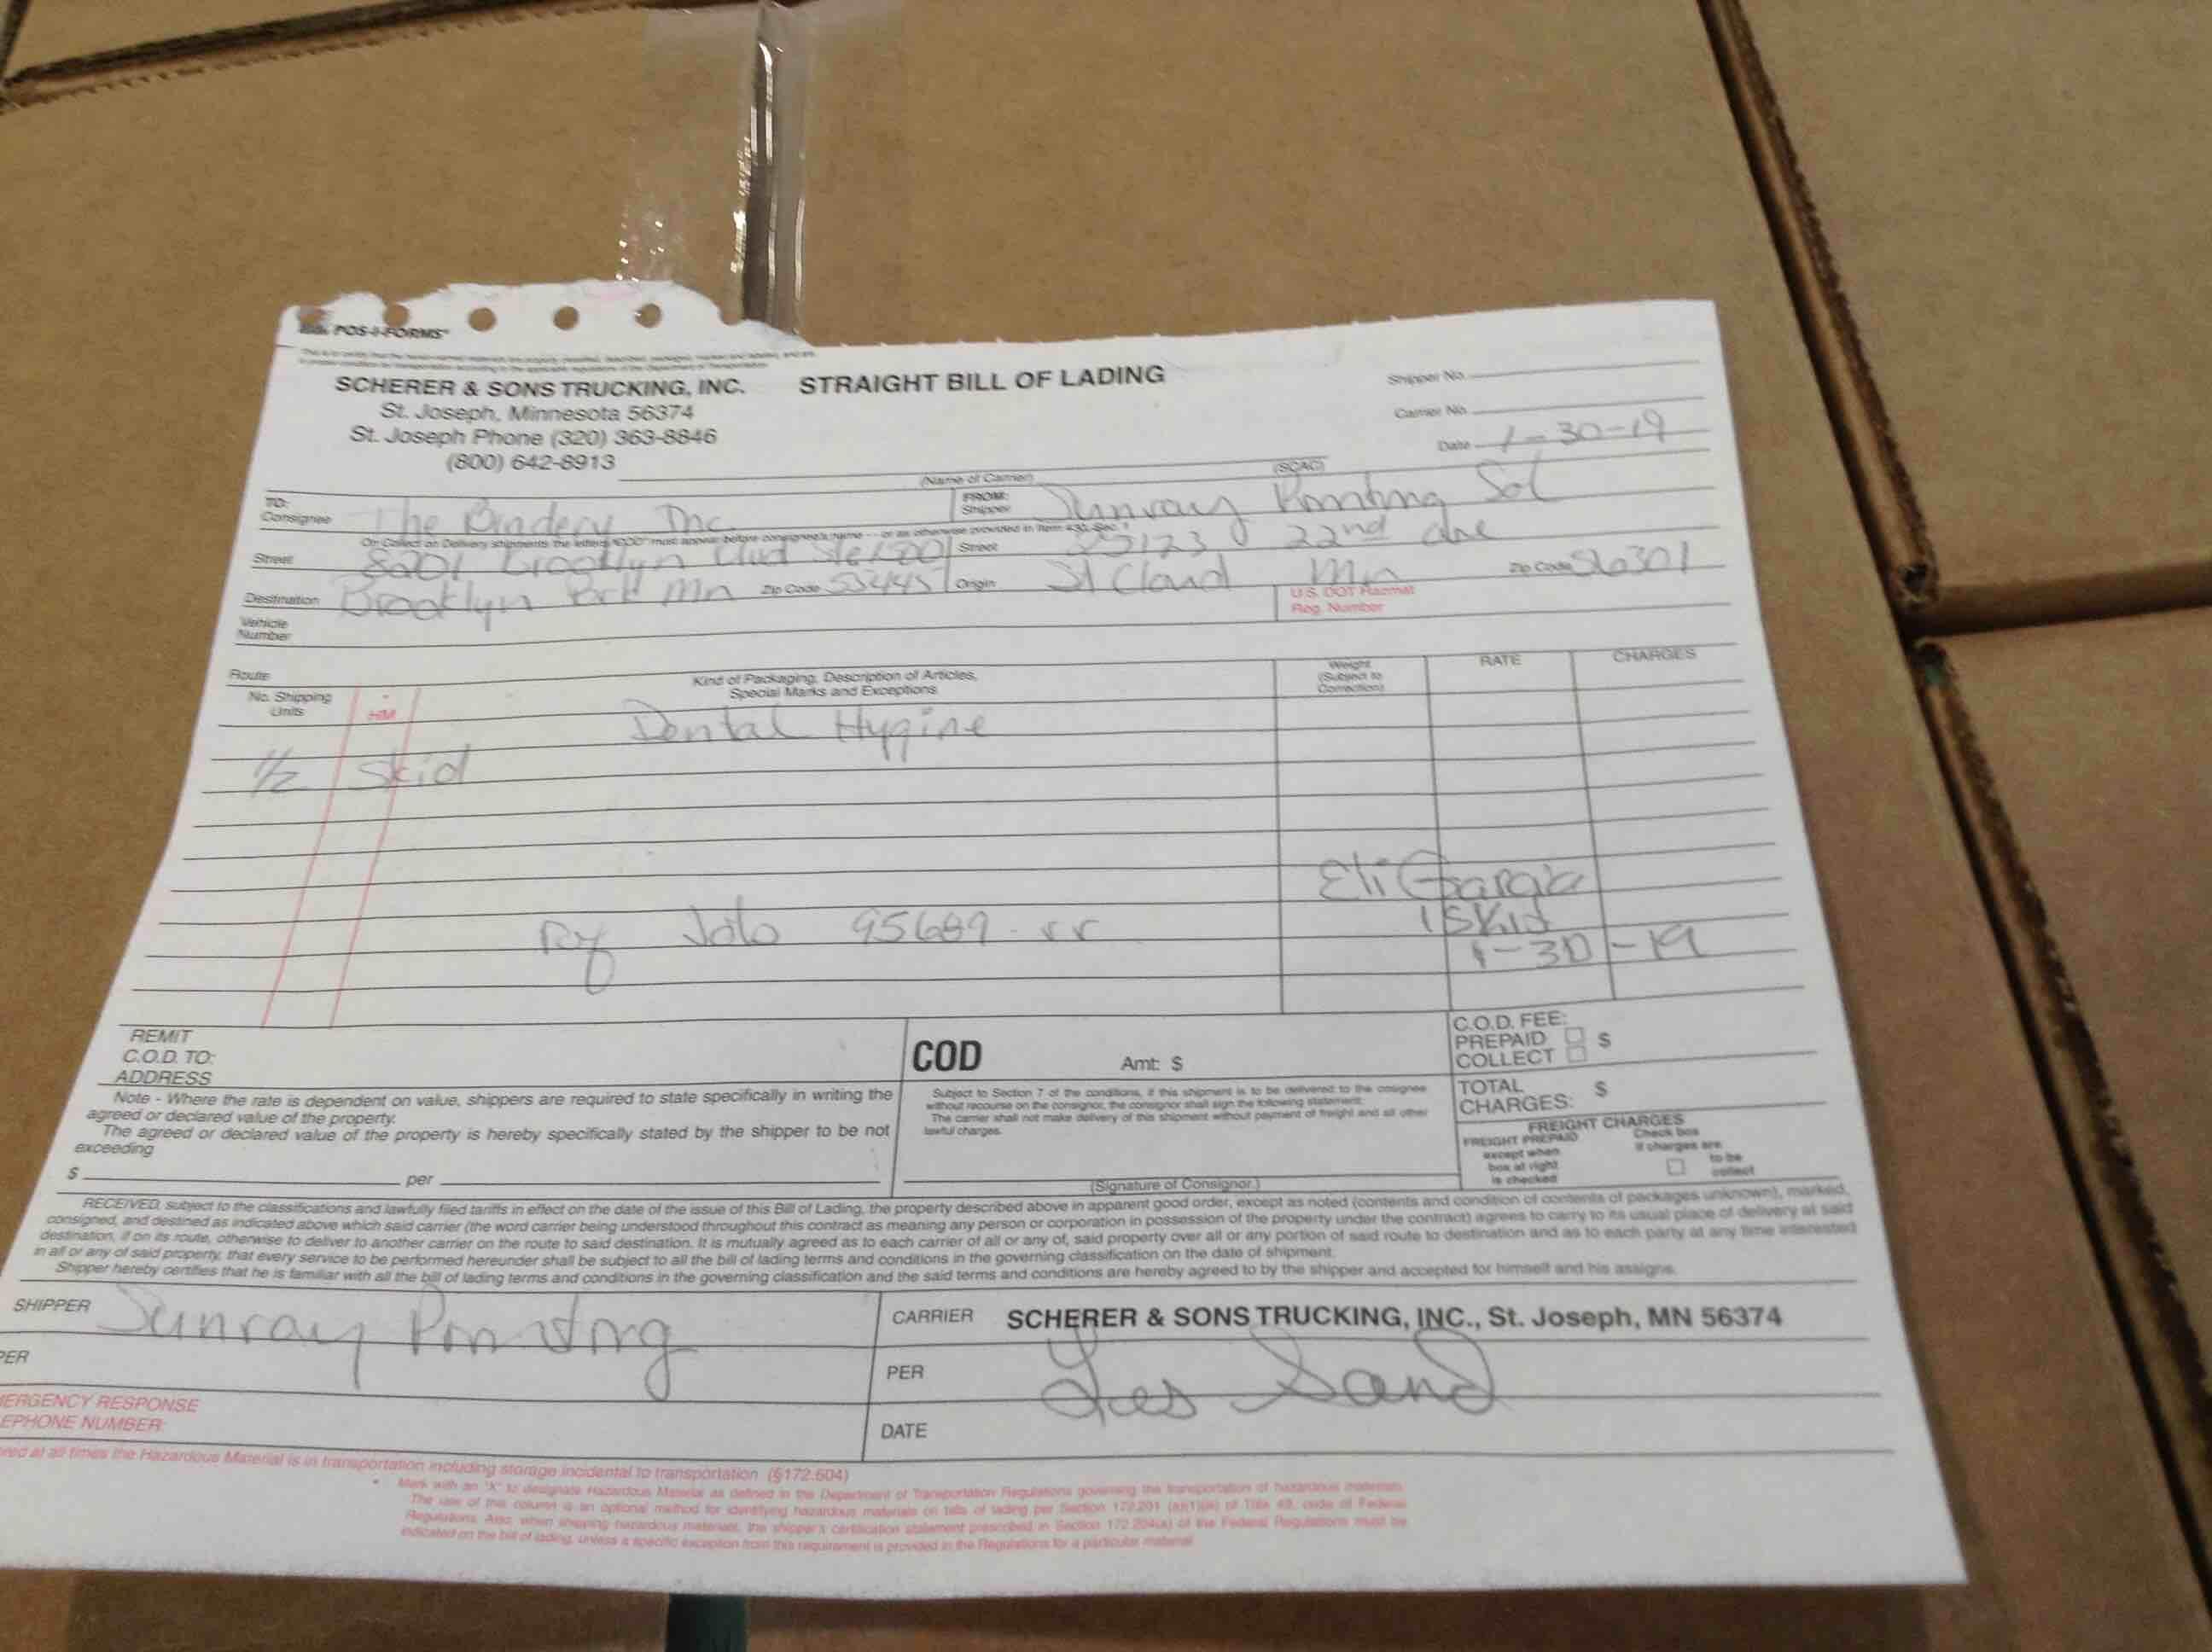 POS-I-FORMS®
SCHERER & SONS TRUCKING, INC. STRAIGHT BILL OF LADING
St. Joseph, Minnesota 56374
St. Joseph Phone (320) 363-8846
(800) 642-8913
Shipper No.
Carrier No.
Date 1-30-19
(Name of Carrier) (SCAC)
TO: Consignee The Bindery Inc. FROM: Shipper Sunray Printing Sol
On Collect on Delivery shipments the letters "COD" must appear before consignee's name - or as otherwise provided in Item 430, Sec. 1
Street 8201 Brooklyn Blvd Ste 100 Street 25123 22nd ave
Destination Brooklyn Park Mn Zip Code 55445 Origin St Cloud Mn Zip Code 56301
Vehicle Number U.S. DOT Hazmat Reg. Number
Route
No. Shipping Units HM Kind of Packaging, Description of Articles, Special Marks and Exceptions Weight (Subject to Correction) RATE CHARGES
Dental Hygine
1/2 skid
Job 95689
Eli
1 Skid
1-30-19
REMIT
C.O.D. TO:
ADDRESS
COD Amt: $
C.O.D. FEE:
PREPAID $
COLLECT
Note - Where the rate is dependent on value, shippers are required to state specifically in writing the
agreed or declared value of the property.
The agreed or declared value of the property is hereby specifically stated by the shipper to be not
exceeding
$ per
Subject to Section 7 of the conditions, if this shipment is to be delivered to the consignee
without recourse on the consignor, the consignor shall sign the following statement:
The carrier shall not make delivery of this shipment without payment of freight and all other
lawful charges.
(Signature of Consignor.)
TOTAL
CHARGES: $
FREIGHT CHARGES
FREIGHT PREPAID
except when
box at right
is checked
Check box
if charges are
to be
collect
RECEIVED, subject to the classifications and lawfully filed tariffs in effect on the date of the issue of this Bill of Lading, the property described above in apparent good order, except as noted (contents and condition of contents of packages unknown), marked,
consigned, and destined as indicated above which said carrier (the word carrier being understood throughout this contract as meaning any person or corporation in possession of the property under the contract) agrees to carry to its usual place of delivery at said
destination, if on its route, otherwise to deliver to another carrier on the route to said destination. It is mutually agreed as to each carrier of all or any of, said property over all or any portion of said route to destination and as to each party at any time interested
in all or any of said property, that every service to be performed hereunder shall be subject to all the bill of lading terms and conditions in the governing classification on the date of shipment.
Shipper hereby certifies that he is familiar with all the bill of lading terms and conditions in the governing classification and the said terms and conditions are hereby agreed to by the shipper and accepted for himself and his assigns.
SHIPPER Sunray Printing CARRIER SCHERER & SONS TRUCKING, INC., St. Joseph, MN 56374
PER PER Les Sand
ERGENCY RESPONSE
EPHONE NUMBER:
DATE
at all times the Hazardous Material is in transportation including storage incidental to transportation (§172.604)
* Mark with an "X" to designate Hazardous Material as defined in the Department of Transportation Regulations governing the transportation of hazardous materials.
The use of this column is an optional method for identifying hazardous materials on bills of lading per Section 172.201 of Title 49, code of Federal
Regulations. Also, when shipping hazardous materials, the shipper's certification statement prescribed in Section 172.204(a) of the Federal Regulations must be
indicated on the bill of lading, unless a specific exception from this requirement is provided in the Regulations for a particular material.